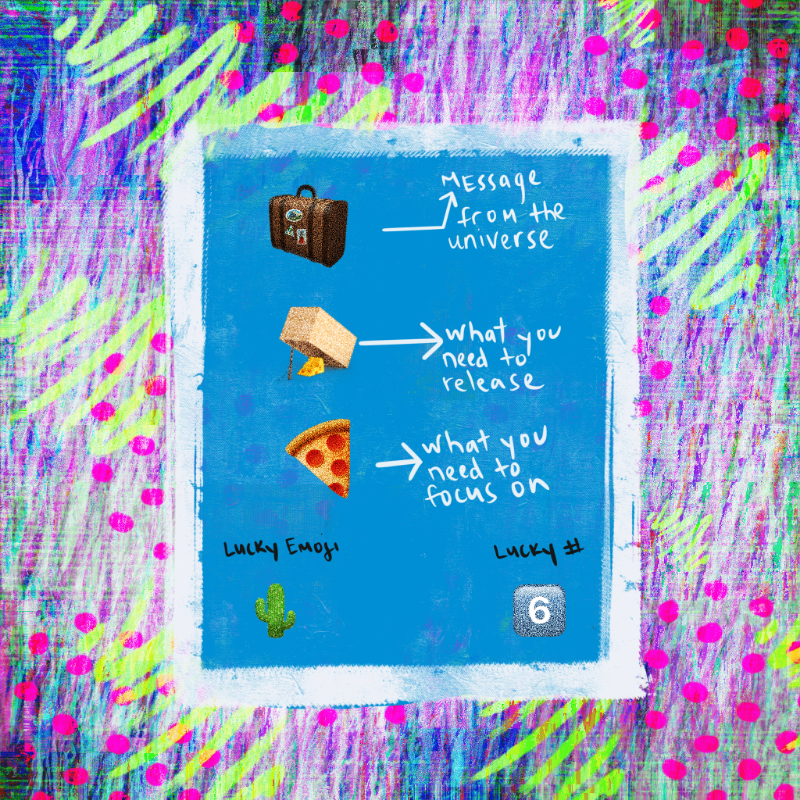 Message
from the
universe
what you
need to
release
what you
need to
focus on
Lucky Emoji
Lucky #
6